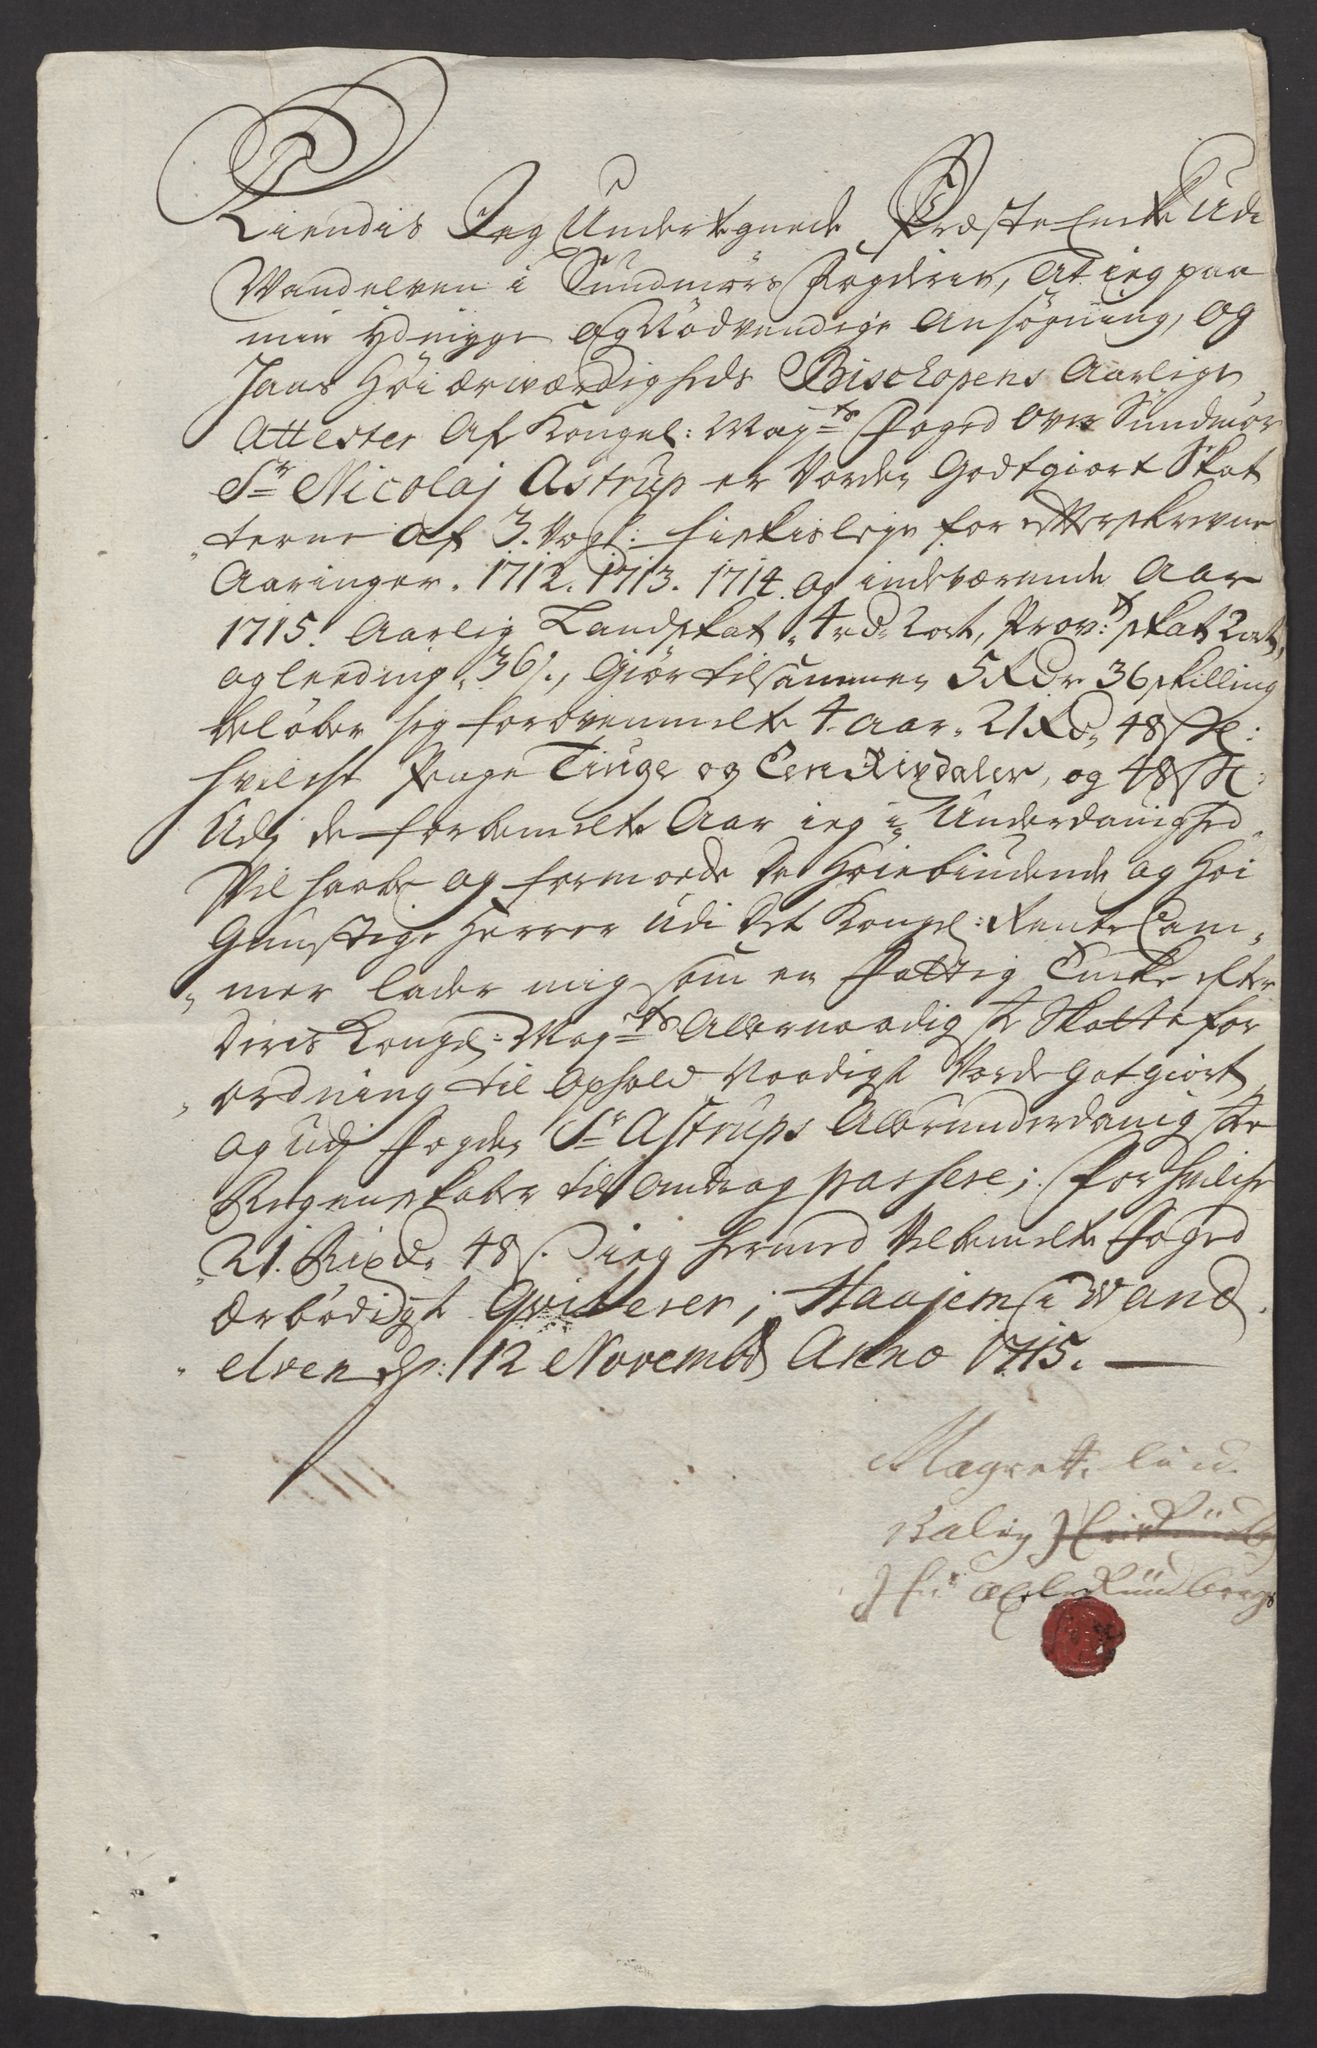 Kiendis Jeg Undertegnede Præste Encke Udi
Wandelven i Sundmørs Fogderie, At ieg paa
min ydmygge og Nödvendige Ansögning, og
Hans Höi ærværdigheds Bischopens Aarlige
Attester Af Kongel: May:ts Foged over Sundmör
Sr Nicolaj Astrup er Vorden Godtgiort Skat
terne af 3. Vogl: fieskisleye for efterskrevne
Aaringer. 1712. 1713. 1714. og indeværende Aar
1715. Aarlig Landskat 4 rd 2 ort, Prov:t skat 2 ort,
og leeding 36 s., Giör tilsammen 5 Rdr 36 skilling
belöber sig forovenmelte 4 Aar 21 Rd. 48 sk:
hvilche Penge Tiuge og Een Rixdaler, og 48 sk:
Udj de forbemelte Aar ieg i Underdanighed
Vil haabe og formoede De Höiebiudende og Höi
Gunstige Herrer Udi Det Kongel: Rente Cam
mer lader mig som en Fattig Encke efter
Deris Kongel: May:ts Allernaadigste Skatte for
ordning til Ophold Naadigst Vorde gotgiort
og Udj Fogden Sr Astrups Allerunderdanigste
Regenskaber til Andrag passere; for hvilche
21. Rixdr 48 s. ieg hermed Velbemelte Foged
ærbödigst Qviterer; Haajem i Wand
elven d: 12 Novembr Anno 1715.
Magrette lund
Salig
Her Axel Rundbergs